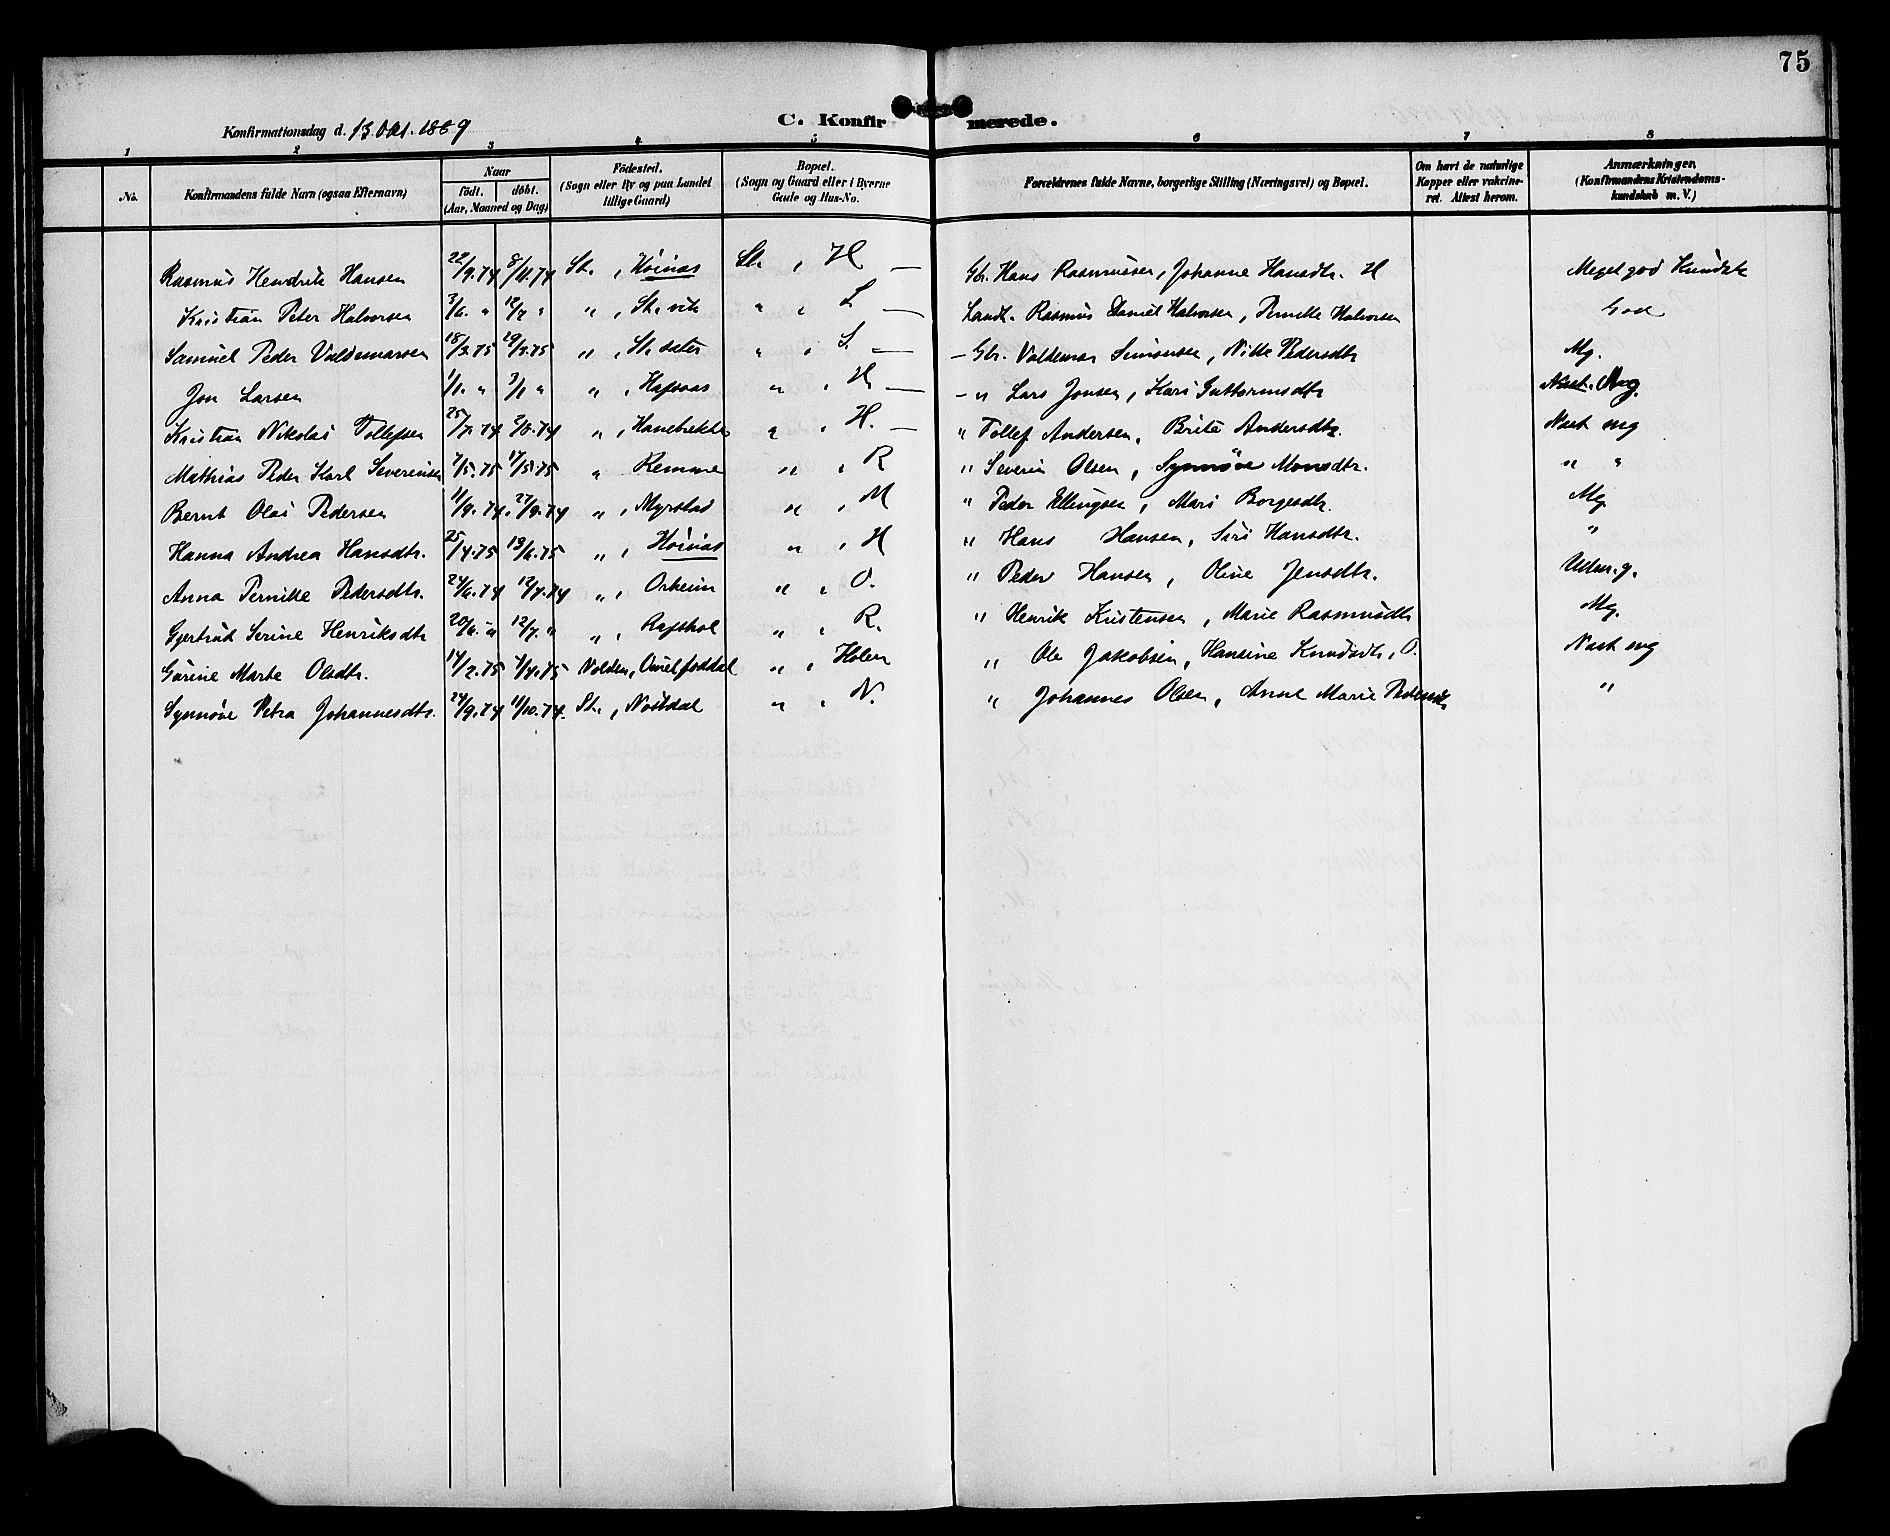 75
Konfirmationsdag d. 13 Okt. 1889
C. Konfirmerede.
1 2 3 4 5 6 7 8
No. Konfirmandens fulde Navn (ogsaa Efternavn) Naar födt. döbt. (Aar, Maaned og Dag) Födested. (Sogn eller By og paa Landet tillige Gaard) Bopæl. (Sogn og Gaard eller i Byerne Gade og Hus-No. Forældrenes fulde Navne, borgerlige Stilling (Næringsvei) og Bopæl. Om havt de naturlige Kopper eller vakcineret. Attest herom. Anmærkninger. (Konfirmandens Kristendomskundskab m. V.)
Rasmus Hendrik Hansen 22/9.74 8/11.74 St., Hóinæs St., H — Gbr. Hans Rasmussen, Johanne Hansdtr. H Meget god Kundsk
Kristian Peter Halvorsen 3/6. " 12/7 " ", St.vik ", S. — Landh. Rasmus Daniel Halvorsen, Pernille Halvorsen God
Samuel Peder Valdemarsen 18/3.75 29/3.75 ", St.sæter ", S. — — Gbr. Valdemar Simonsen, Nille Pedersdtr Mg.
Jon Larsen 1/1. " 3/1 " ", Hafsaas ", H. — — " Lars Jonsen, Kari Guttormsdtr Mg.
Kristian Nikolai Tollefsen 25/7.74 2/8.74 ", Hanebrekke ", H. — " Tollef Andersen, Brite Andersdtr. Næst mg
Mathias Peder Karl Severinsen 7/5.75 17/5.75 " Remme ", R " Severin Olsen, Synnøve Monsdtr. " "
Bernt Olai Pedersen 11/9.74. 27/9.74 ", Myrstad ", M " Peder Ellingsen, Mari Borgesdtr. Mg
Hanna Andrea Hansdtr. 25/4.75 13/6.75 ", Hóinæs ", H " Hans Hansen, Siri Hansdtr. "
Anna Pernille Pedersdtr. 24/6.74 12/7.74 ", Orheim ", O. " Peder Hansen, Oline Jensdtr. Udm.g.
Gjertrud Serine Henriksdtr 20/6. " 12/7. " ", Rafthol ", R. " Henrik Kristensen, Marie Rasmusdtr Mg.
Gurine Marte Olsdtr. 14/2.75 4/4.75 Volden, ", Holen " Ole Jakobsen, Hansine Knudsdtr, O. Næst mg
Synnøve Petra Johannesdtr. 24/9.74 11/10.74. St., Nóstdal ", N. " Johannes Olsen, Anne Marie Pedersdtr "